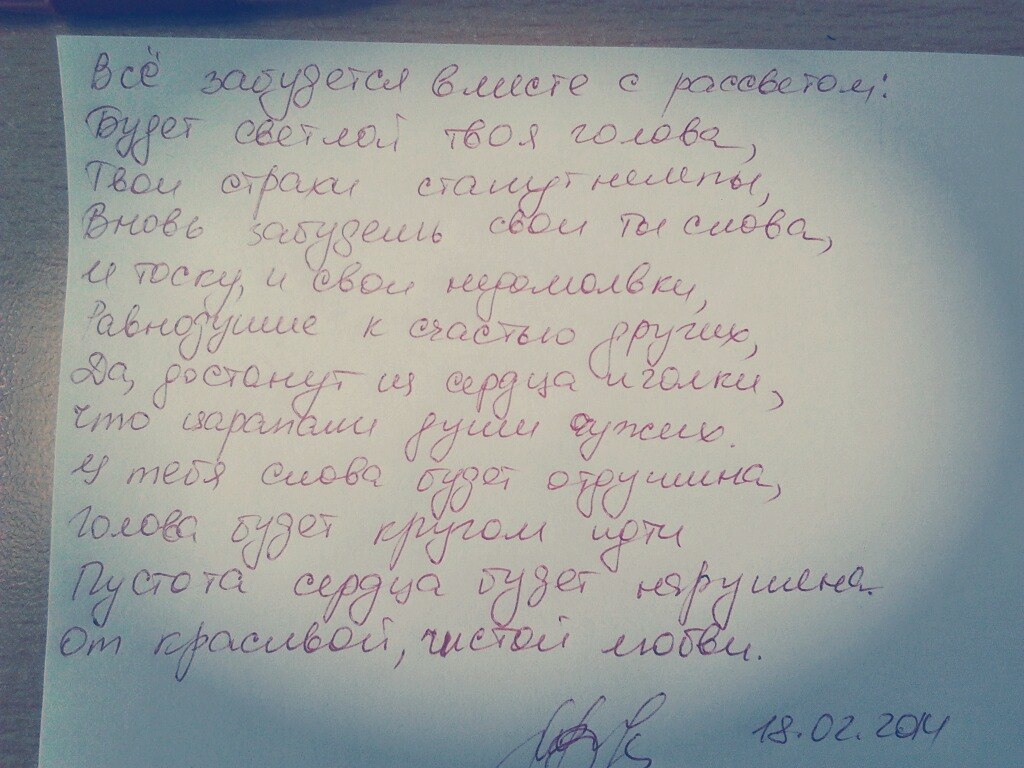 Всё забудется вместе с рассветом:
Будет светлой твоя голова,
Твои страхи станут нелепы,
Вновь забудешь свои ты слова,
И тоску, и свои недомолвки,
Равнодушие к счастью других,
Да, достанут из сердца иголки,
Что царапали души чужих.
У тебя снова будет отдушина,
Голова будет кругом идти
Пустота сердца будет нарушена.
От красивой, чистой любви.
18.02.2014